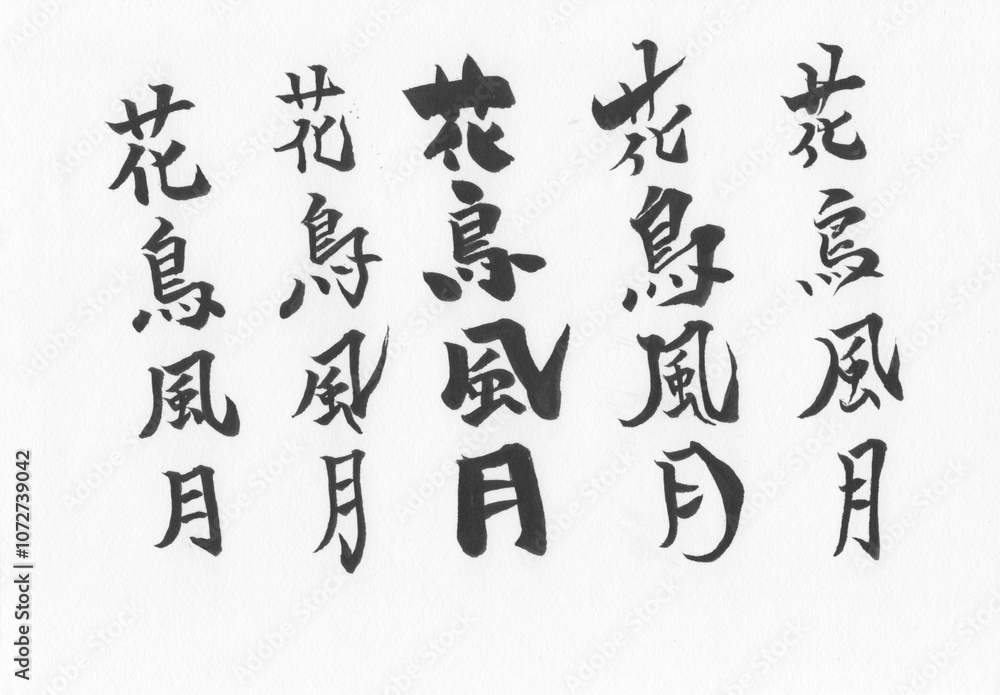 花鳥風月
花鳥風月
花鳥風月
花鳥風月
花鳥風月
Adobe Stock | #1072739042